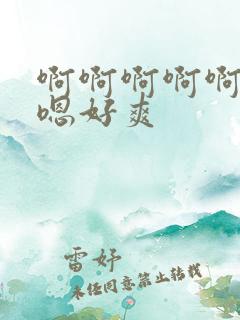 啊啊啊啊啊
嗯好爽
雷妤
未经同意禁止转载